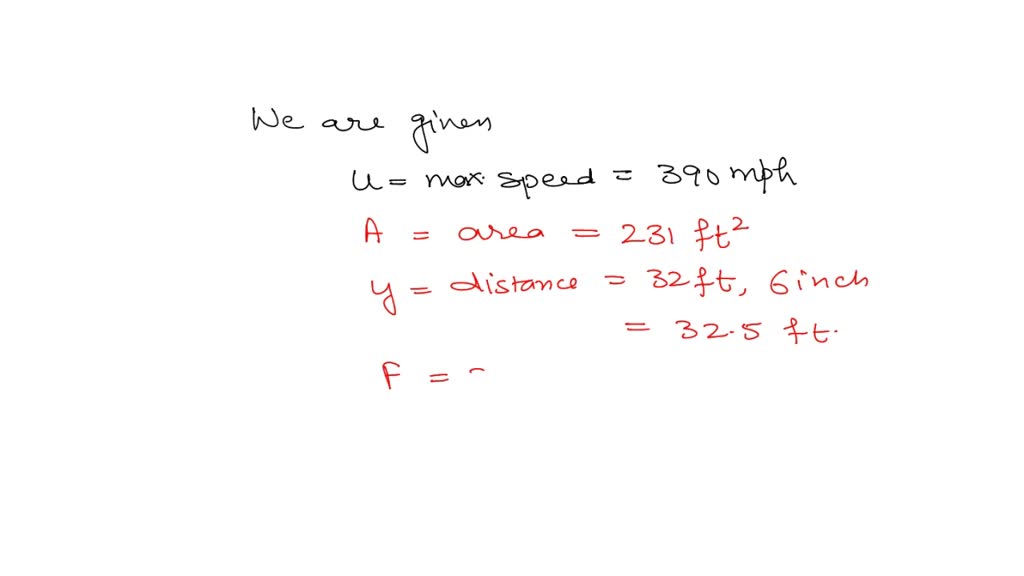 We are given
u = max. speed = 390 mph
A = area = 231 ft²
y = distance = 32 ft, 6 inch
= 32.5 ft.
F =